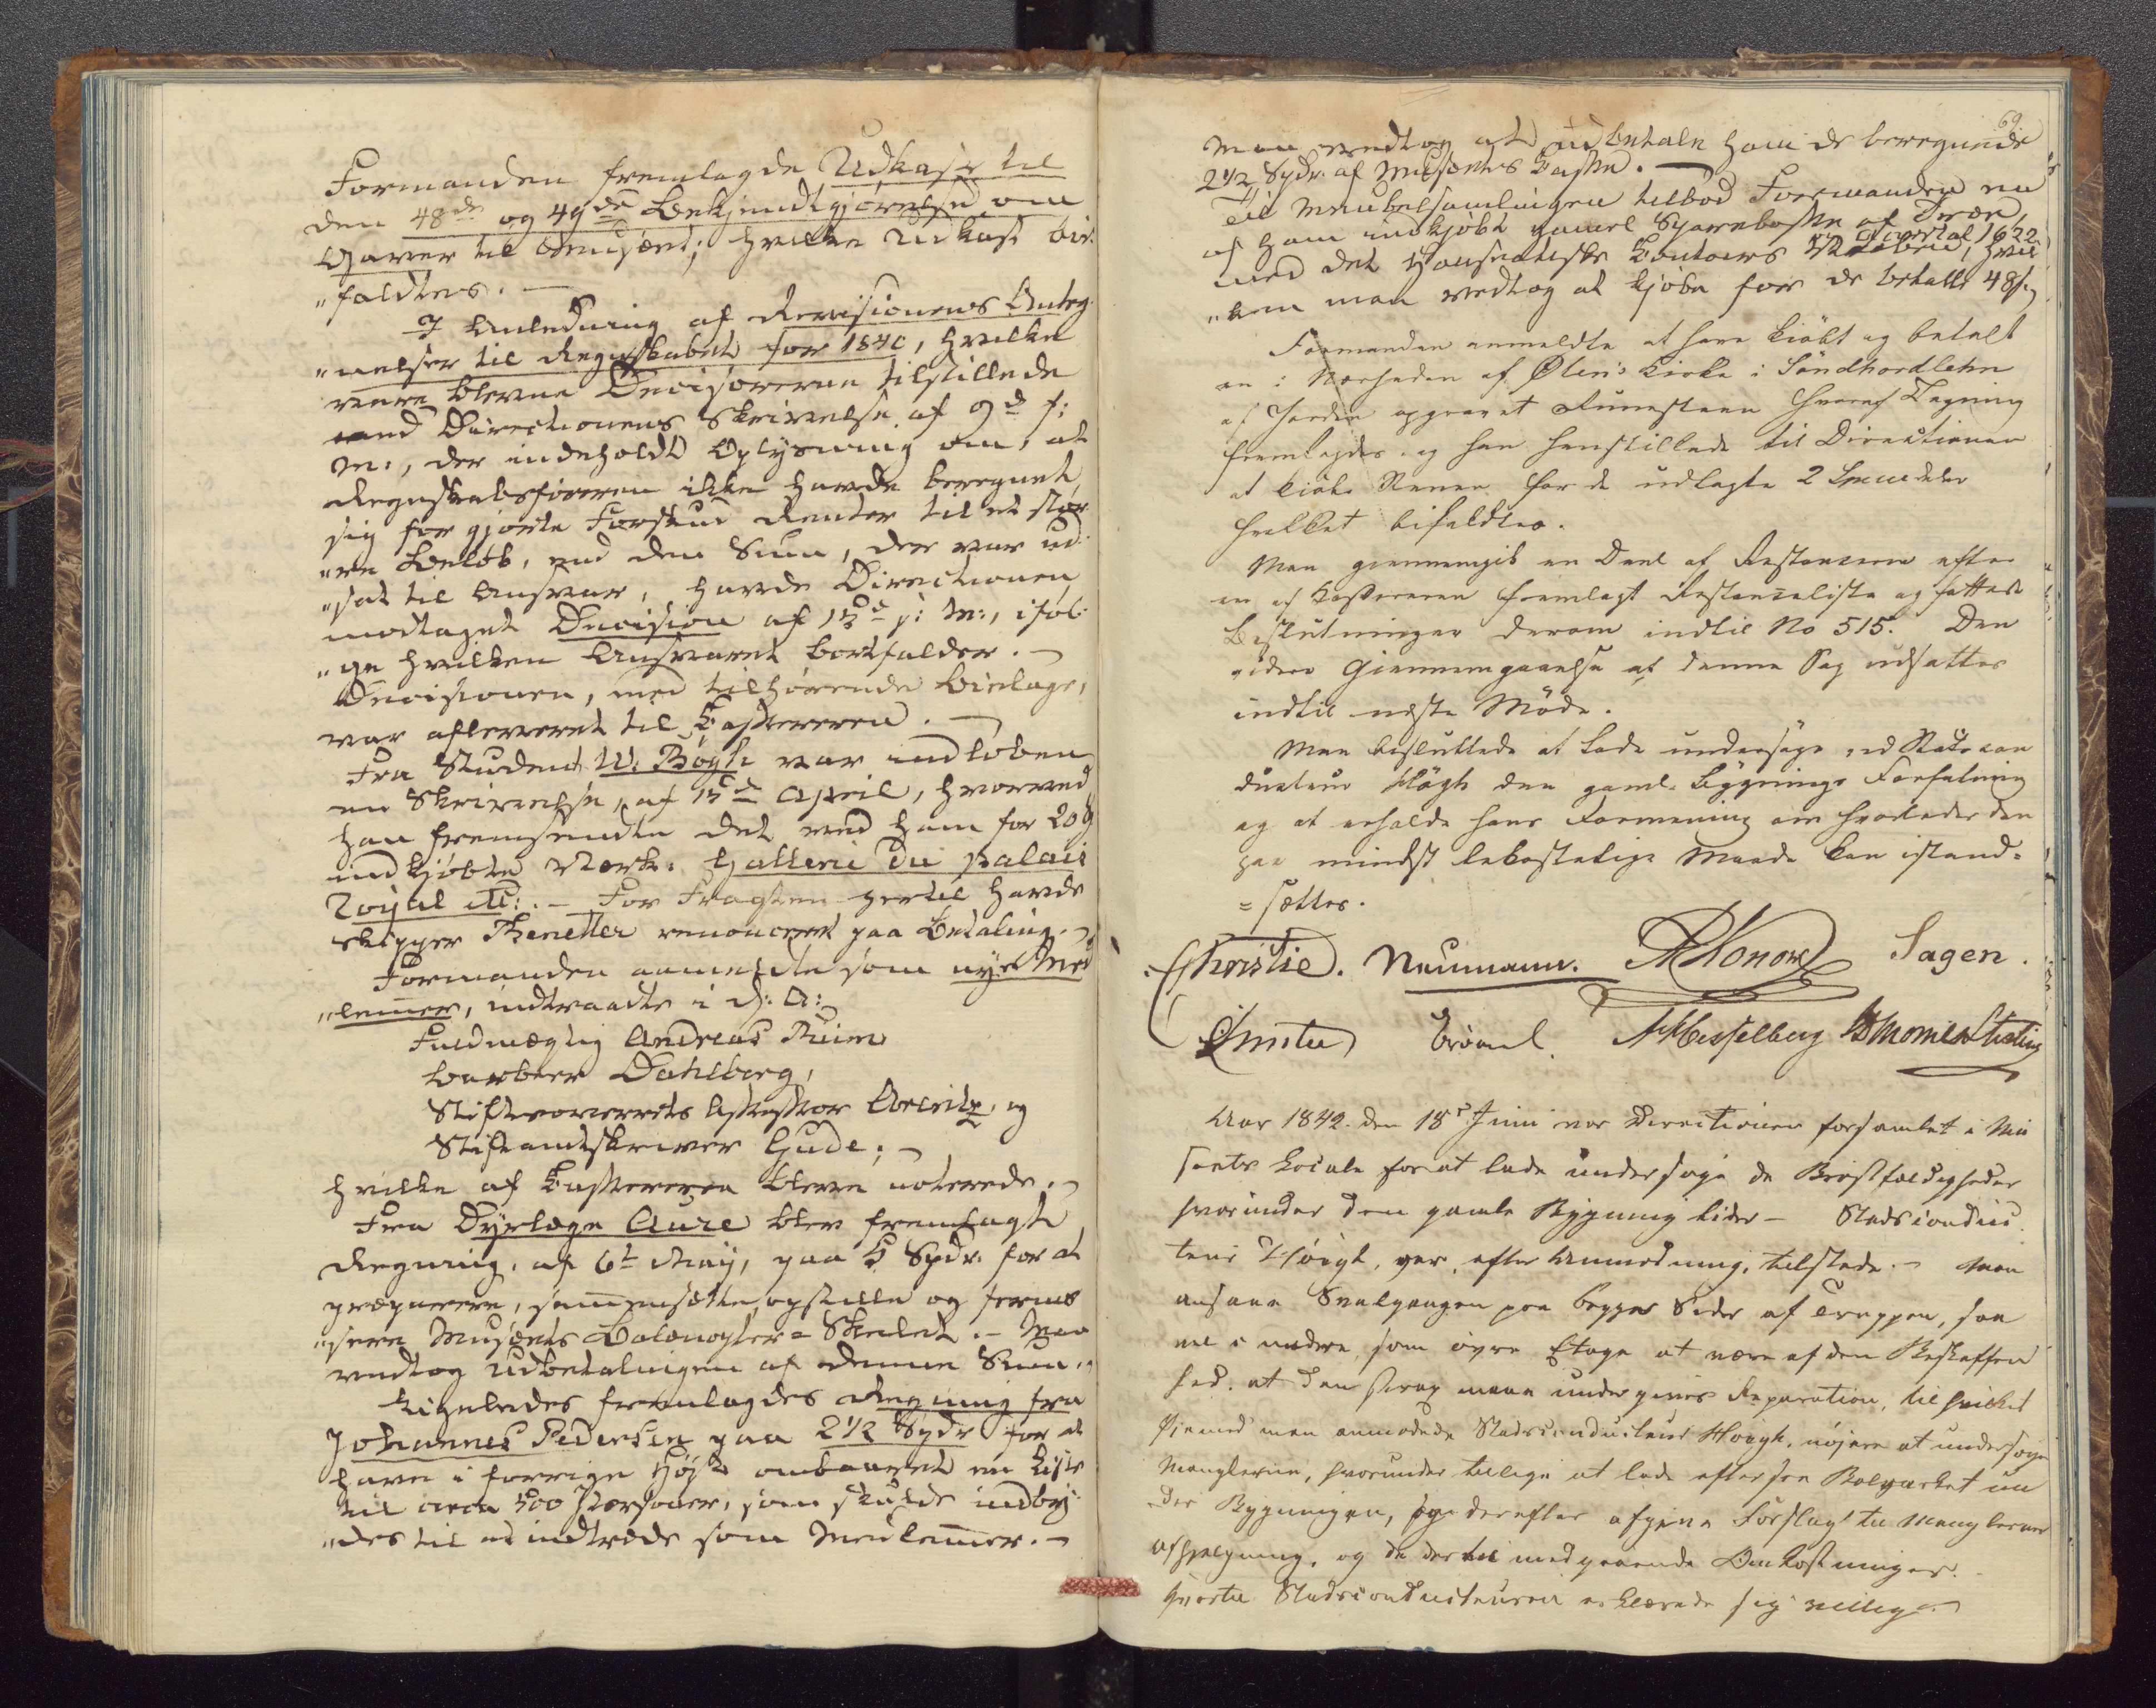 Formanden fremlagde Udkast til
den 48de og 49de Bekjendtgjörelse om
Gaver til Museet; hvilke Udkast bi-
"faldtes. —
I Anledning af Revisionens Anteg-
"nelser til Regnskabet for 1840, hvilke
vare blevne Decisorerne tilstillede
med Directionens Skrivelse af 9de f:
M:, der indeholdt Oplysning om, at
Regnskabsföreren ikke havde beregnet
sig for gjorte Forskud Renter til et stör-
"re Belöb, end den Sum, der var ud-
"sat til Ansvar, havde Directionen
modtaget Decision af 13de s: M:, iföl-
"ge hvilken Ansvaret bortfalder. —
Decisionen, med tilhörende Bielage,
var afleveret til Kassereren. —
Fra Student W. Bögh var indlöben
en Skrivelse, af 15de April, hvorved
han fremsendte det ved ham for 20
indkjöbte Værk: Gallerie du palais
Royal etc: — For Fragten hertil havde
Skipper renonceret paa Betaling. —
Formanden anmeldte som nye Med-
"lemmer, indtraadte i d: A:
Fuldmægtig Andreas Ruim
Barbeer Dahlberg,
Stiftsoverrets Assessor og
Stiftamtskriver Gude; —
hvilke af Kassereren bleve noterede. —
Fra Dyrlæge Aure blev fremlagt
Regning, af 6te May, paa 5 Spdr. for at
præparere, sammensætte, opstille og fernis-
"sere Museets Balænoptera-Skelet. — Man
vedtog Udbetalingen af denne Sum. —
Ligeledes fremlagdes Regning fra
Johannes Pedersen paa 2 1/2 Spdr for at
have i forrige Höst ombaaret en Liste
til circa 500 Personer, som skulde indby-
"des til at indtræde som Medlemmer. —
69.
Man vedtog at udbetale ham de beregnede
2 1/2 Spdr. af Museets Kasse. —
Til Meubelsamlingen tilbod Formanden en
af ham indkjöbt gammel Sparebösse af Træe,
med det Hanseatiske Contoirs Vaaben, og Aarstal 1622, hvil-
"ken man vedtog at kjöbe for de betalte 48 s.
Formanden anmeldte at have kiöbt og betalt
en i Nærheden af Ølen's Kirke i Söndhordlehn
af Jorden opgravet Runesteen hvoraf Tegning
fremlagdes, og han henstillede til Directionen
at kiöbe Stenen for de udlagte 2 Speciedaler
hvilket bifaldtes.
Man giennemgik en Deel af Restancerne efter
en af Kassereren fremlagt Restanceliste og fattede
Beslutninger derom indtil No 515. Den
videre Giennemgaaelse af denne Sag udsattes
indtil næste Möde.
Man besluttede at lade undersöge ved Stadscon-
ducteur Höegh den gamle Bygnings Forfatning
og at erholde hans Formening om hvorledes den
paa mindst bekostelige Maade kan istand-
= sættes.
Christie. Neumann. Konow Sagen.
Irgens Hesselberg
Aar 1842 den 18de Juni var Directionen forsamlet i Mu
seets Locale for at lade undersöge de Bröstfældigheder
hvorunder den gamle Bygning lider — Stadsconduc
teur Höegh, var, efter Anmodning, tilstede. — Man
ansaae Svalgangen paa begge Sider af Trappen, saa
vel i nedre som övre Etage at være af den Beskaffen
hed, at den strax maae undergives Reparation, til hvilket
Øiemed man anmodede Stadsconducteur Höegh, nöiere at undersöge
Manglerne, hvorunder tillige at lade eftersee Bolværket un
der Bygningen, og derefter afgive Forslag til Manglernes
Afhjælpning, og de dertil medgaaende Omkostninger.
hvortil Stadsconducteuren erklærede sig villig. —